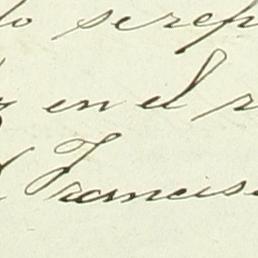 lo se rep
en el r
Francis